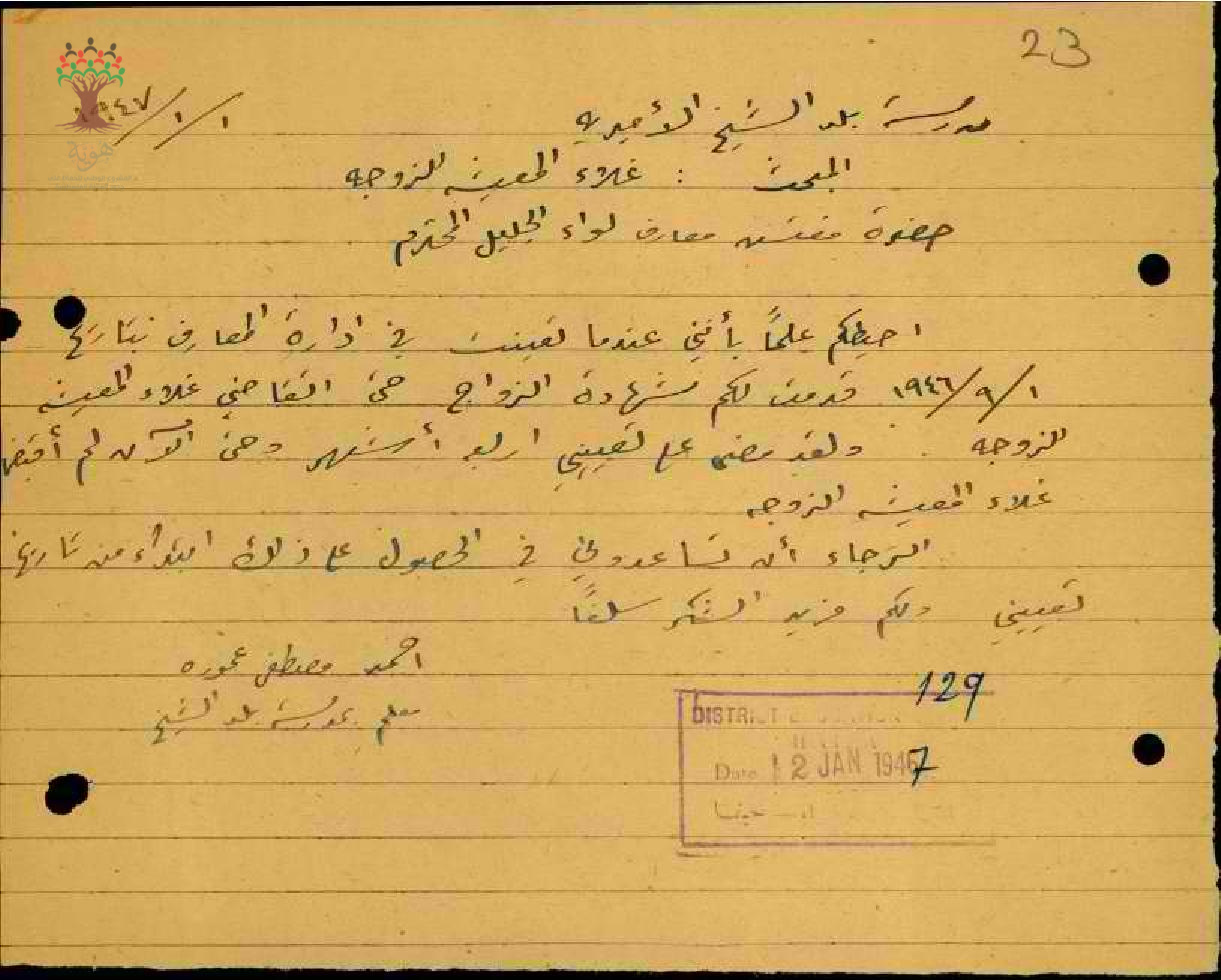 23
مدرسة بلد الشيخ الأميريه
١/١/١٩٤٧
المبحث : غلاء المعيشه للزوجه
حضرة مفتش معارف لواء الجليل المحترم
احيطكم علماً بأنني عندما تعينت في ادارة المعارف بتاريخ
١/٩/١٩٤٦ قدمت لكم شهادة الزواج حتى اتقاضى غلاء المعيشه
للزوجه . ولقد مضى على تعييني اربع أشهر وحتى الآن لم أقبض
غلاء المعيشه للزوجه
الرجاء أن تساعدوني في الحصول على ذلك ابتداء من تاريخ
تعييني ولكم مزيد الشكر سلفاً
احمد مصطفى عموره
معلم بمدرسة بلد الشيخ
129
DISTRICT
Date 12 JAN 1947
هوية